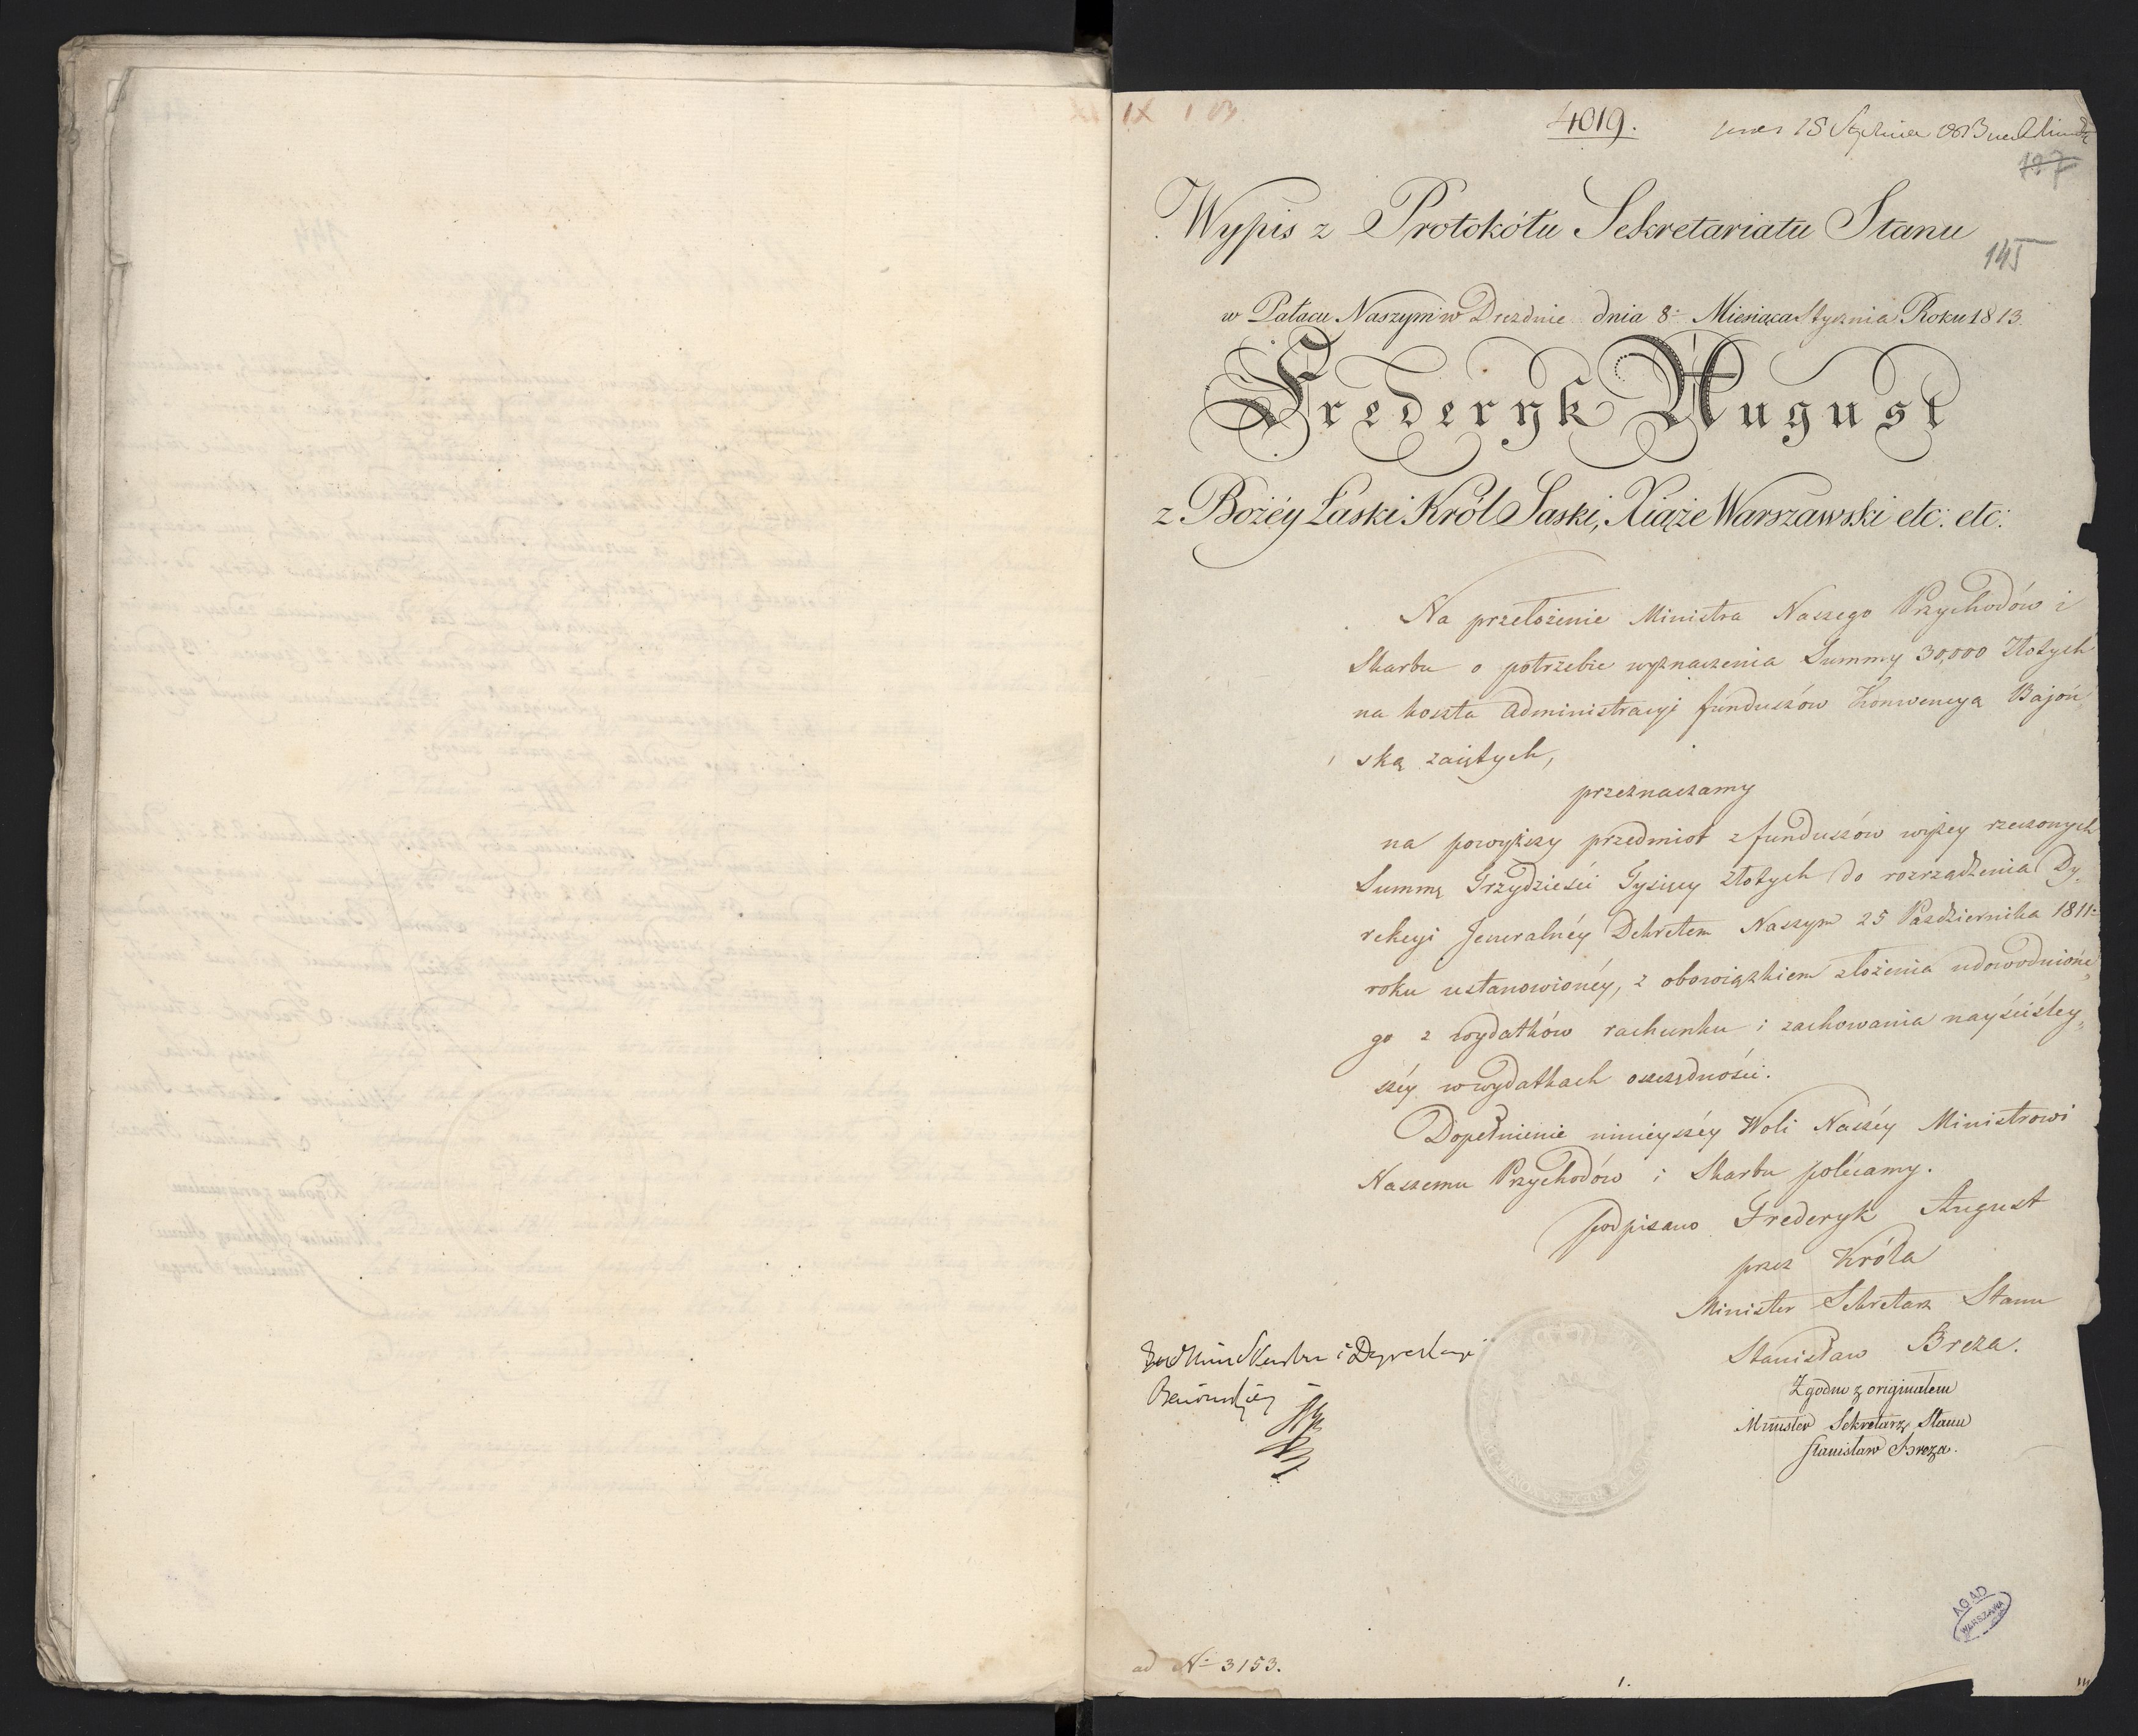 4019.
15 Stycznia
127
Wypis z Protokółu Sekretariatu Stanu
145
w Pałacu Naszym w Dreznie dnia 8: Miesiąca Stycznia Roku 1813
Frederyk August
z Bożéy Łaski Król Saski, Xiąże Warszawski etc: etc:
Na przełożenie Ministra Naszego Przychodów i
Skarbu o potrzebie wyznaczenia Summy 30,000 Złotych
na koszta administracyi funduszów Konwencyą Bajoń
ską zaiętych,
przeznaczamy
na powyższy przedmiot z funduszów wyżey rzeczonych
Summę Trzydzieści Tysięcy złotych do rozrządzenia Dy,
rekcyi Jeneralnéy Dekretem Naszym 25 Października 1811=
roku ustanowionéy, z obowiązkiem złożenia udowodnione,
go z wydatków rachunku i zachowania nayściśley,
széy w wydatkach oszczędności.
Dopełnienie ninieyszéy Woli Naszéy Ministrowi
Naszemu Przychodów i Skarbu polécamy.
podpisano Frederyk August
przez Króla
Minister Sekretarz Stanu
Stanisław Breza.
Zgodno z originałem
Minister Sekretarz Stanu
Stanisław Breza.
i Dyrekcyi
AGAD
WARSZAWA
ad N= 3153.
1.